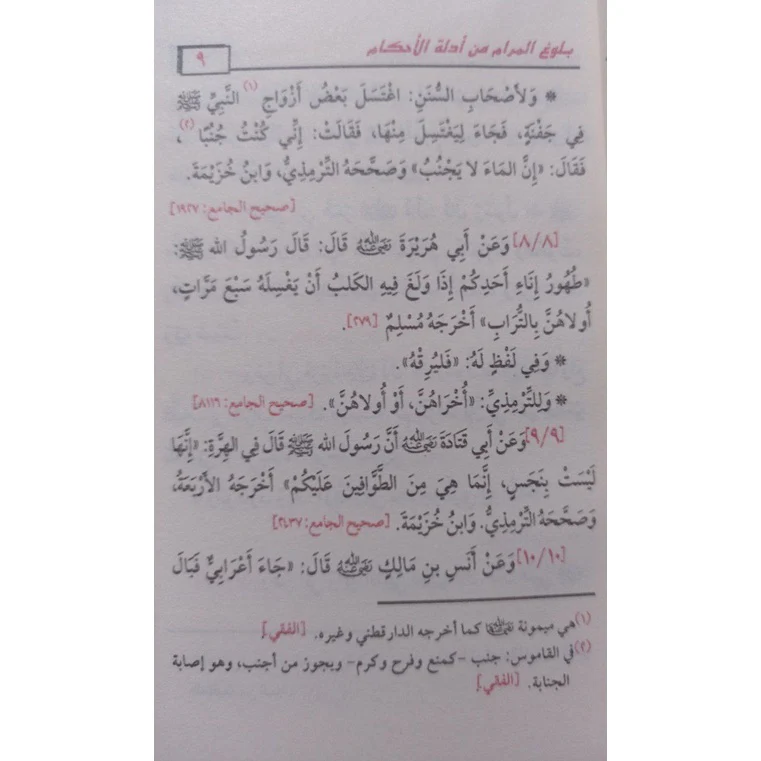 بلوغ المرام من أدلة الأحكام
٩
* وَلأَصْحَابِ السُّنَنِ: اغْتَسَلَ بَعْضُ أَزْوَاجِ (١) النَّبِيِّ ﷺ
فِي جَفْنَةٍ، فَجَاءَ لِيَغْتَسِلَ مِنْهَا، فَقَالَتْ: إِنِّي كُنْتُ جُنُبًا (٢)،
فَقَالَ: «إِنَّ المَاءَ لا يَجْنُبُ» وَصَحَّحَهُ التِّرْمِذِيُّ، وَابنُ خُزَيْمَةَ.
[صحيح الجامع: ١٩٢٧]
[٨/٨] وَعَنْ أَبِي هُرَيْرَةَ رَضِيَ اللَّهُ عَنْهُ قَالَ: قَالَ رَسُولُ الله ﷺ:
«طُهُورُ إِنَاءِ أَحَدِكُمْ إِذَا وَلَغَ فِيهِ الكَلبُ أَنْ يَغْسِلَهُ سَبْعَ مَرَّاتٍ،
أُولاهُنَّ بِالتُّرَابِ» أَخْرَجَهُ مُسْلِمٌ [٢٧٩].
* وَفِي لَفْظٍ لَهُ: «فَليُرِقْهُ».
* وَلِلتِّرْمِذِيِّ: «أُخْرَاهُنَّ، أَوْ أُولاهُنَّ». [صحيح الجامع: ٨١١٦]
[٩/٩] وَعَنْ أَبِي قَتَادَةَ رَضِيَ اللَّهُ عَنْهُ أَنَّ رَسُولَ الله ﷺ قَالَ فِي الهِرَّةِ: «إِنَّهَا
لَيْسَتْ بِنَجَسٍ، إِنَّمَا هِيَ مِنَ الطَّوَّافِينَ عَلَيْكُمْ» أَخْرَجَهُ الأَرْبَعَةُ،
وَصَحَّحَهُ التِّرْمِذِيُّ. وَابنُ خُزَيْمَةَ. [صحيح الجامع: ٢٤٣٧]
[١٠/١٠] وَعَنْ أَنَسِ بنِ مَالِكٍ رَضِيَ اللَّهُ عَنْهُ قَالَ: «جَاءَ أَعْرَابِيٌّ فَبَالَ
(١) هي ميمونة رَضِيَ اللَّهُ عَنْهَا كما أخرجه الدارقطني وغيره. [الفقي].
(٢) في القاموس: جنب -كمنع وفرح وكرم- ويجوز من أجنب، وهو إصابة
الجنابة. [الفقي].